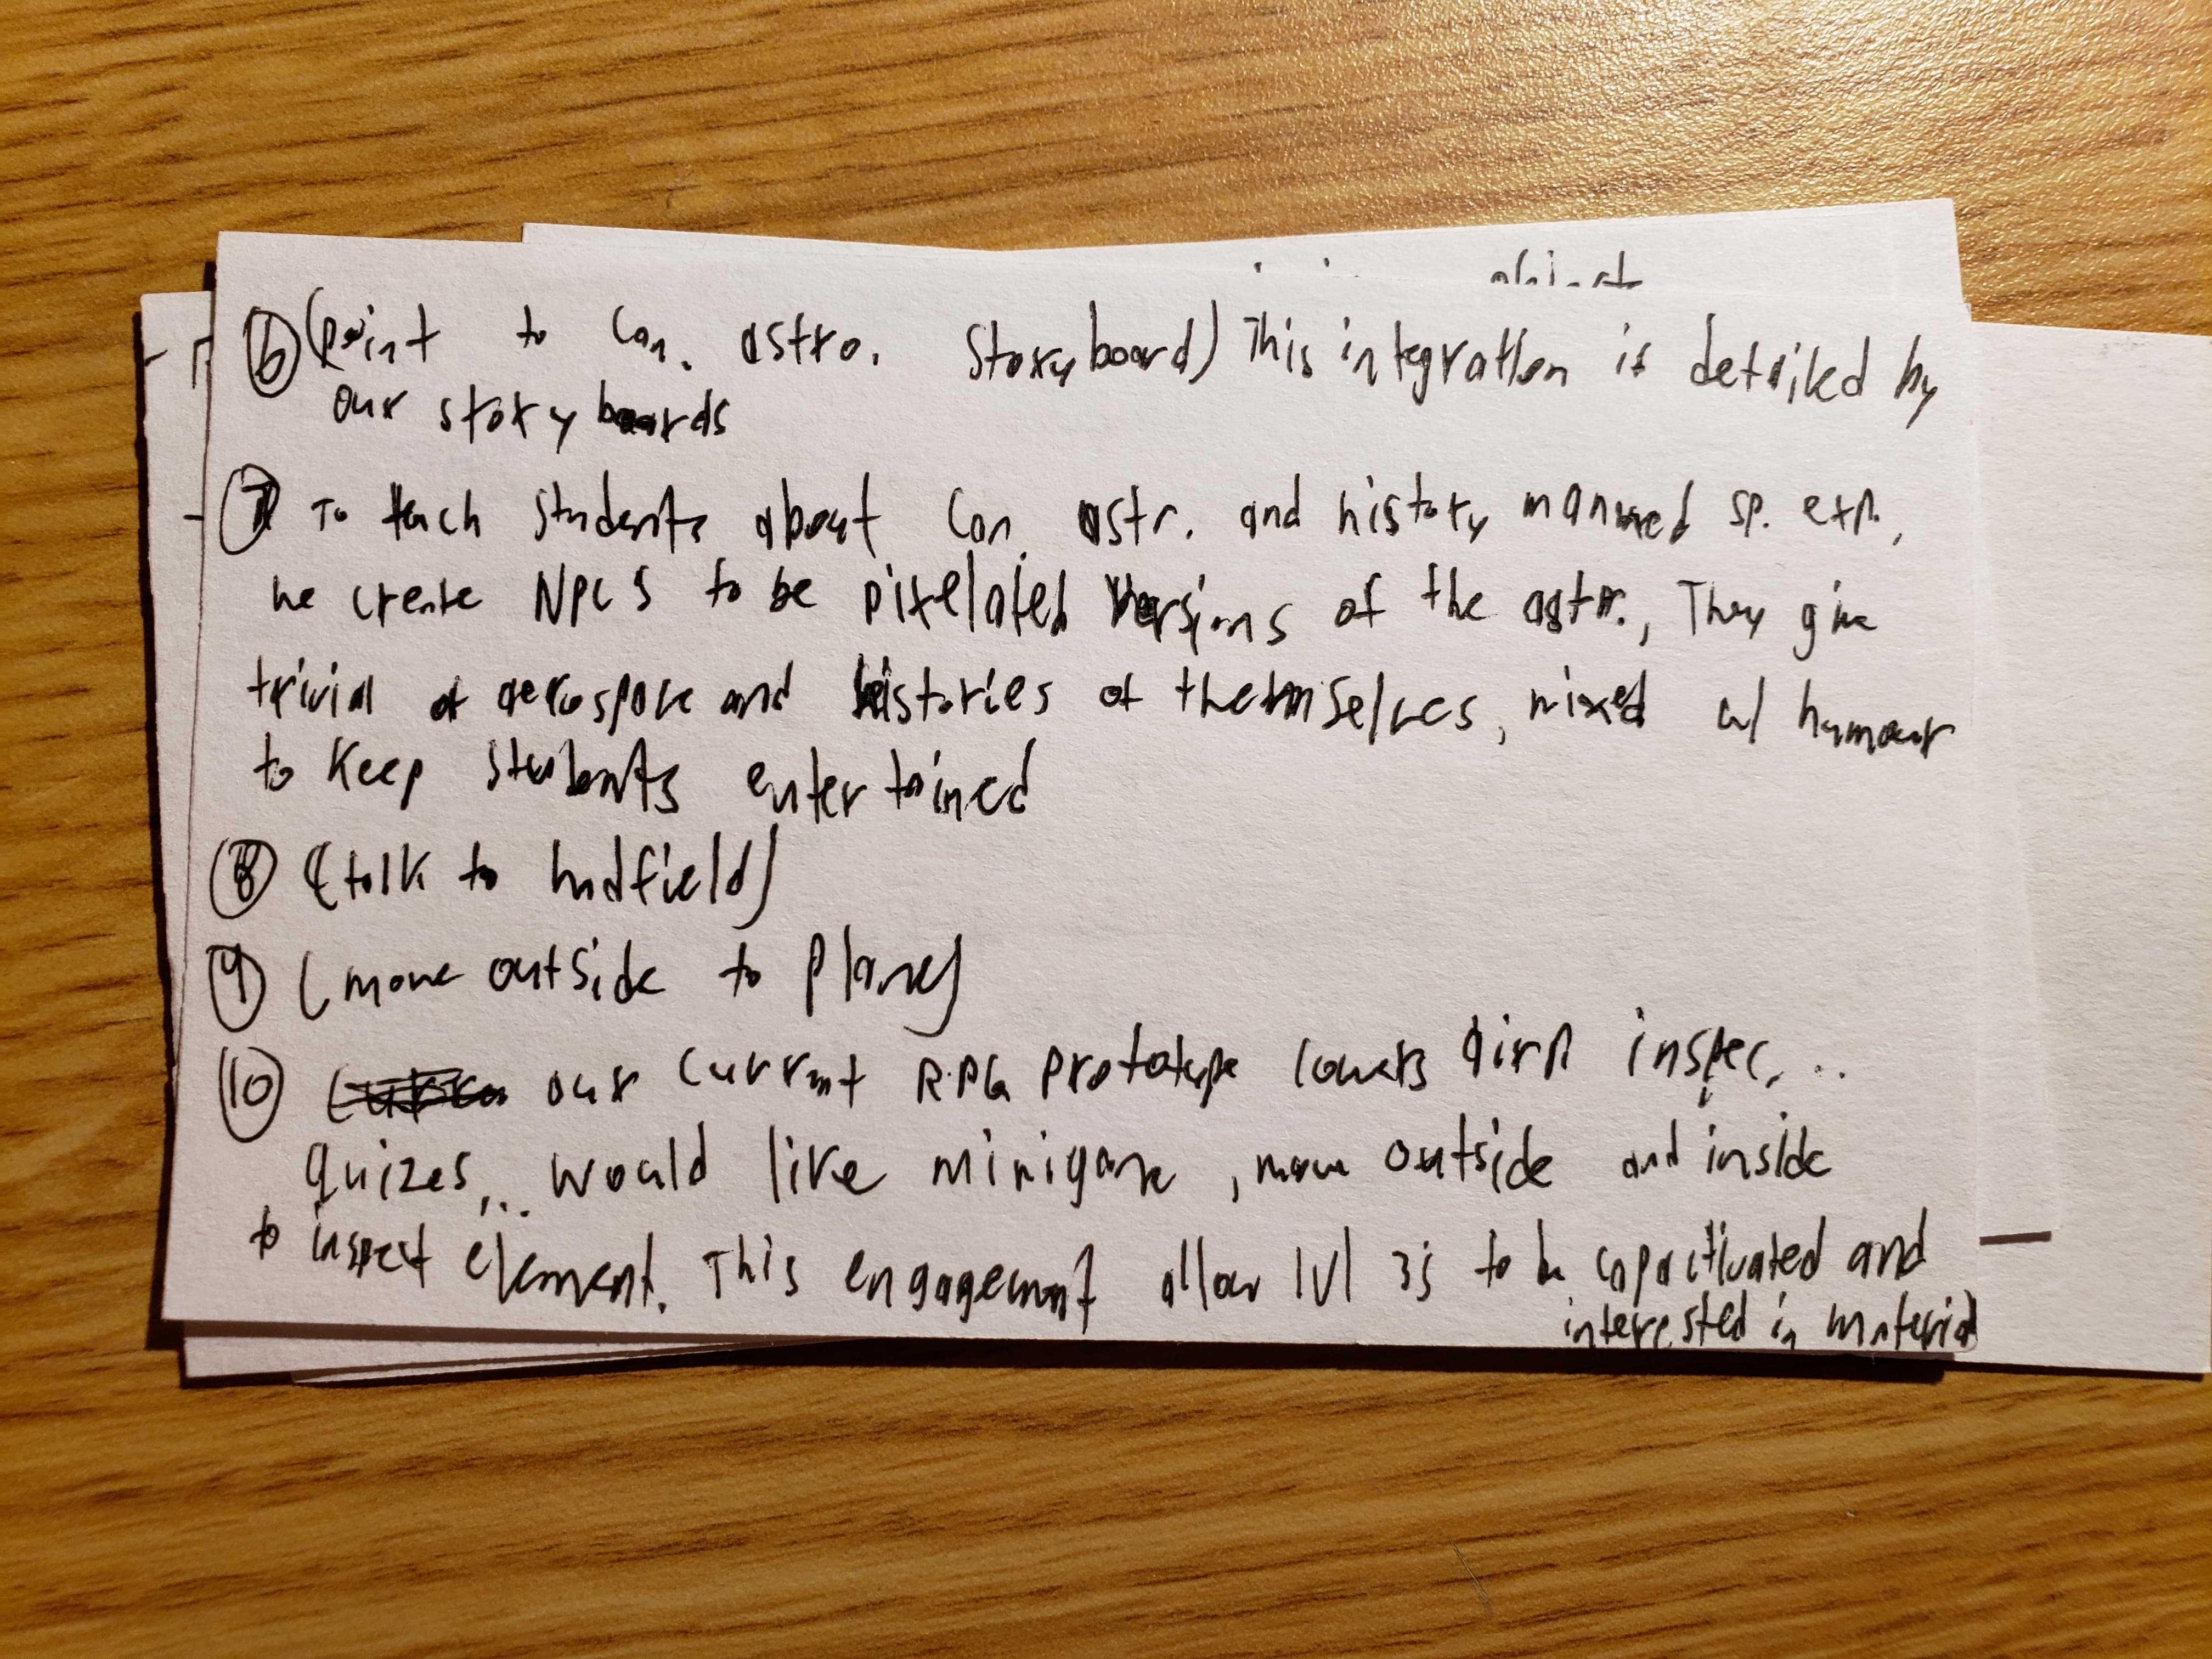 ⑥ (point to Can. astro. Storyboard) This integration is detailed by
our storyboards
⑦ To teach students about Can. astr. and history manned sp. exp.,
we create NPCS to be pixelated versions of the astr., They give
trivial of aerospace and histories of themselves, mixed w/ humour
to keep students entertained
⑧ (talk to hadfield)
⑨ (move outside to plane)
⑩ our current RPG prototype covers inspec...
quizes... would like minigame, move outside and inside
to inspect element. This engagement allow lvl 3s to be and
interested in material